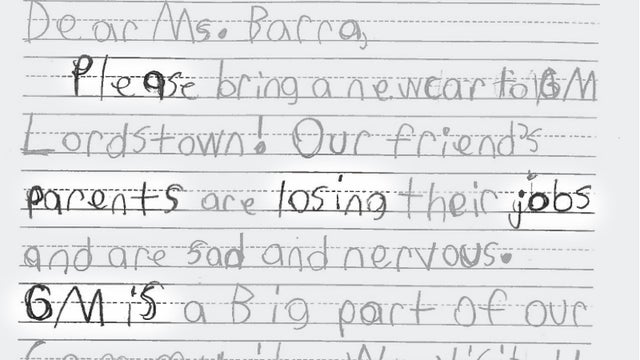 Dear Ms. Barra,
Please bring a new car to GM
Lordstown! Our friend's
parents are losing their jobs
and are sad and nervous.
GM is a Big part of our